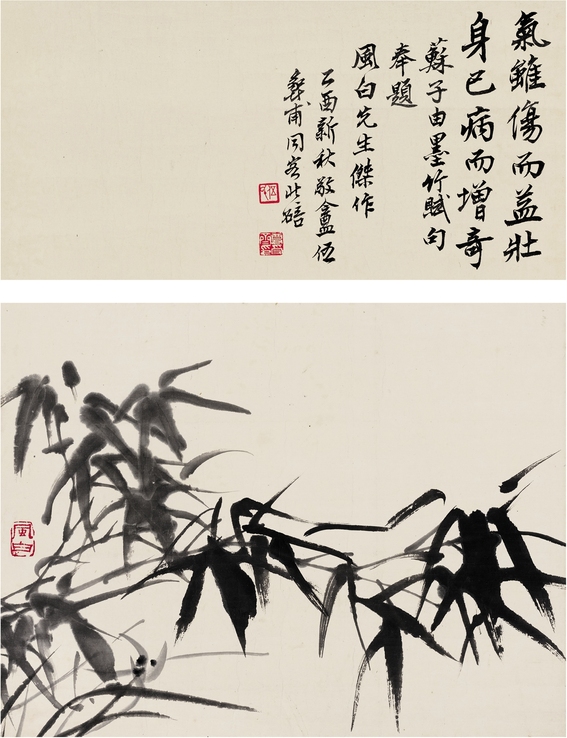 氣雖傷而益壯
身已病而增奇
蘇子由墨竹賦句
奉題
風白先生傑作
乙酉新秋敬盦伍
蠡甫同客北碚
風白